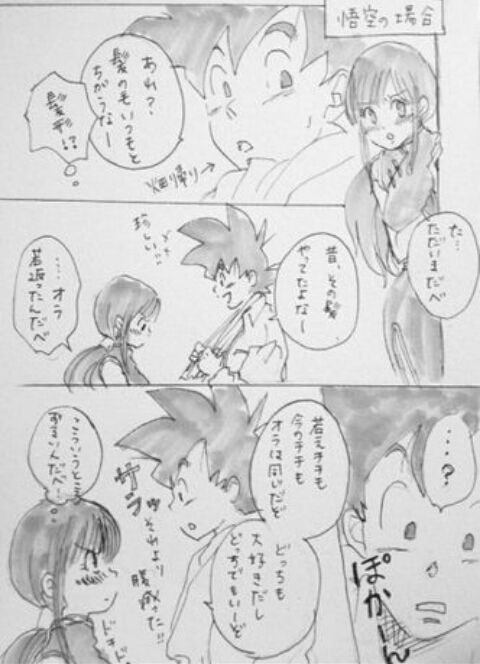 悟空の場合
た…
ただいまだべ
あれ?
髪の毛いつもと
ちがうなー
髪形!?
畑帰り→
昔、その髪
やってたよなー
珍しい!!
‥‥オラ
若返ったんだべ
‥‥?
ぽかーん
若えチチも
今のチチも
オラは同じだぞ
どっちも
大好きだし
どっちでもいーぞ
サラッ
それより
腹減った!!
こういうとこ
ずるいんだべ!
ドキドキ